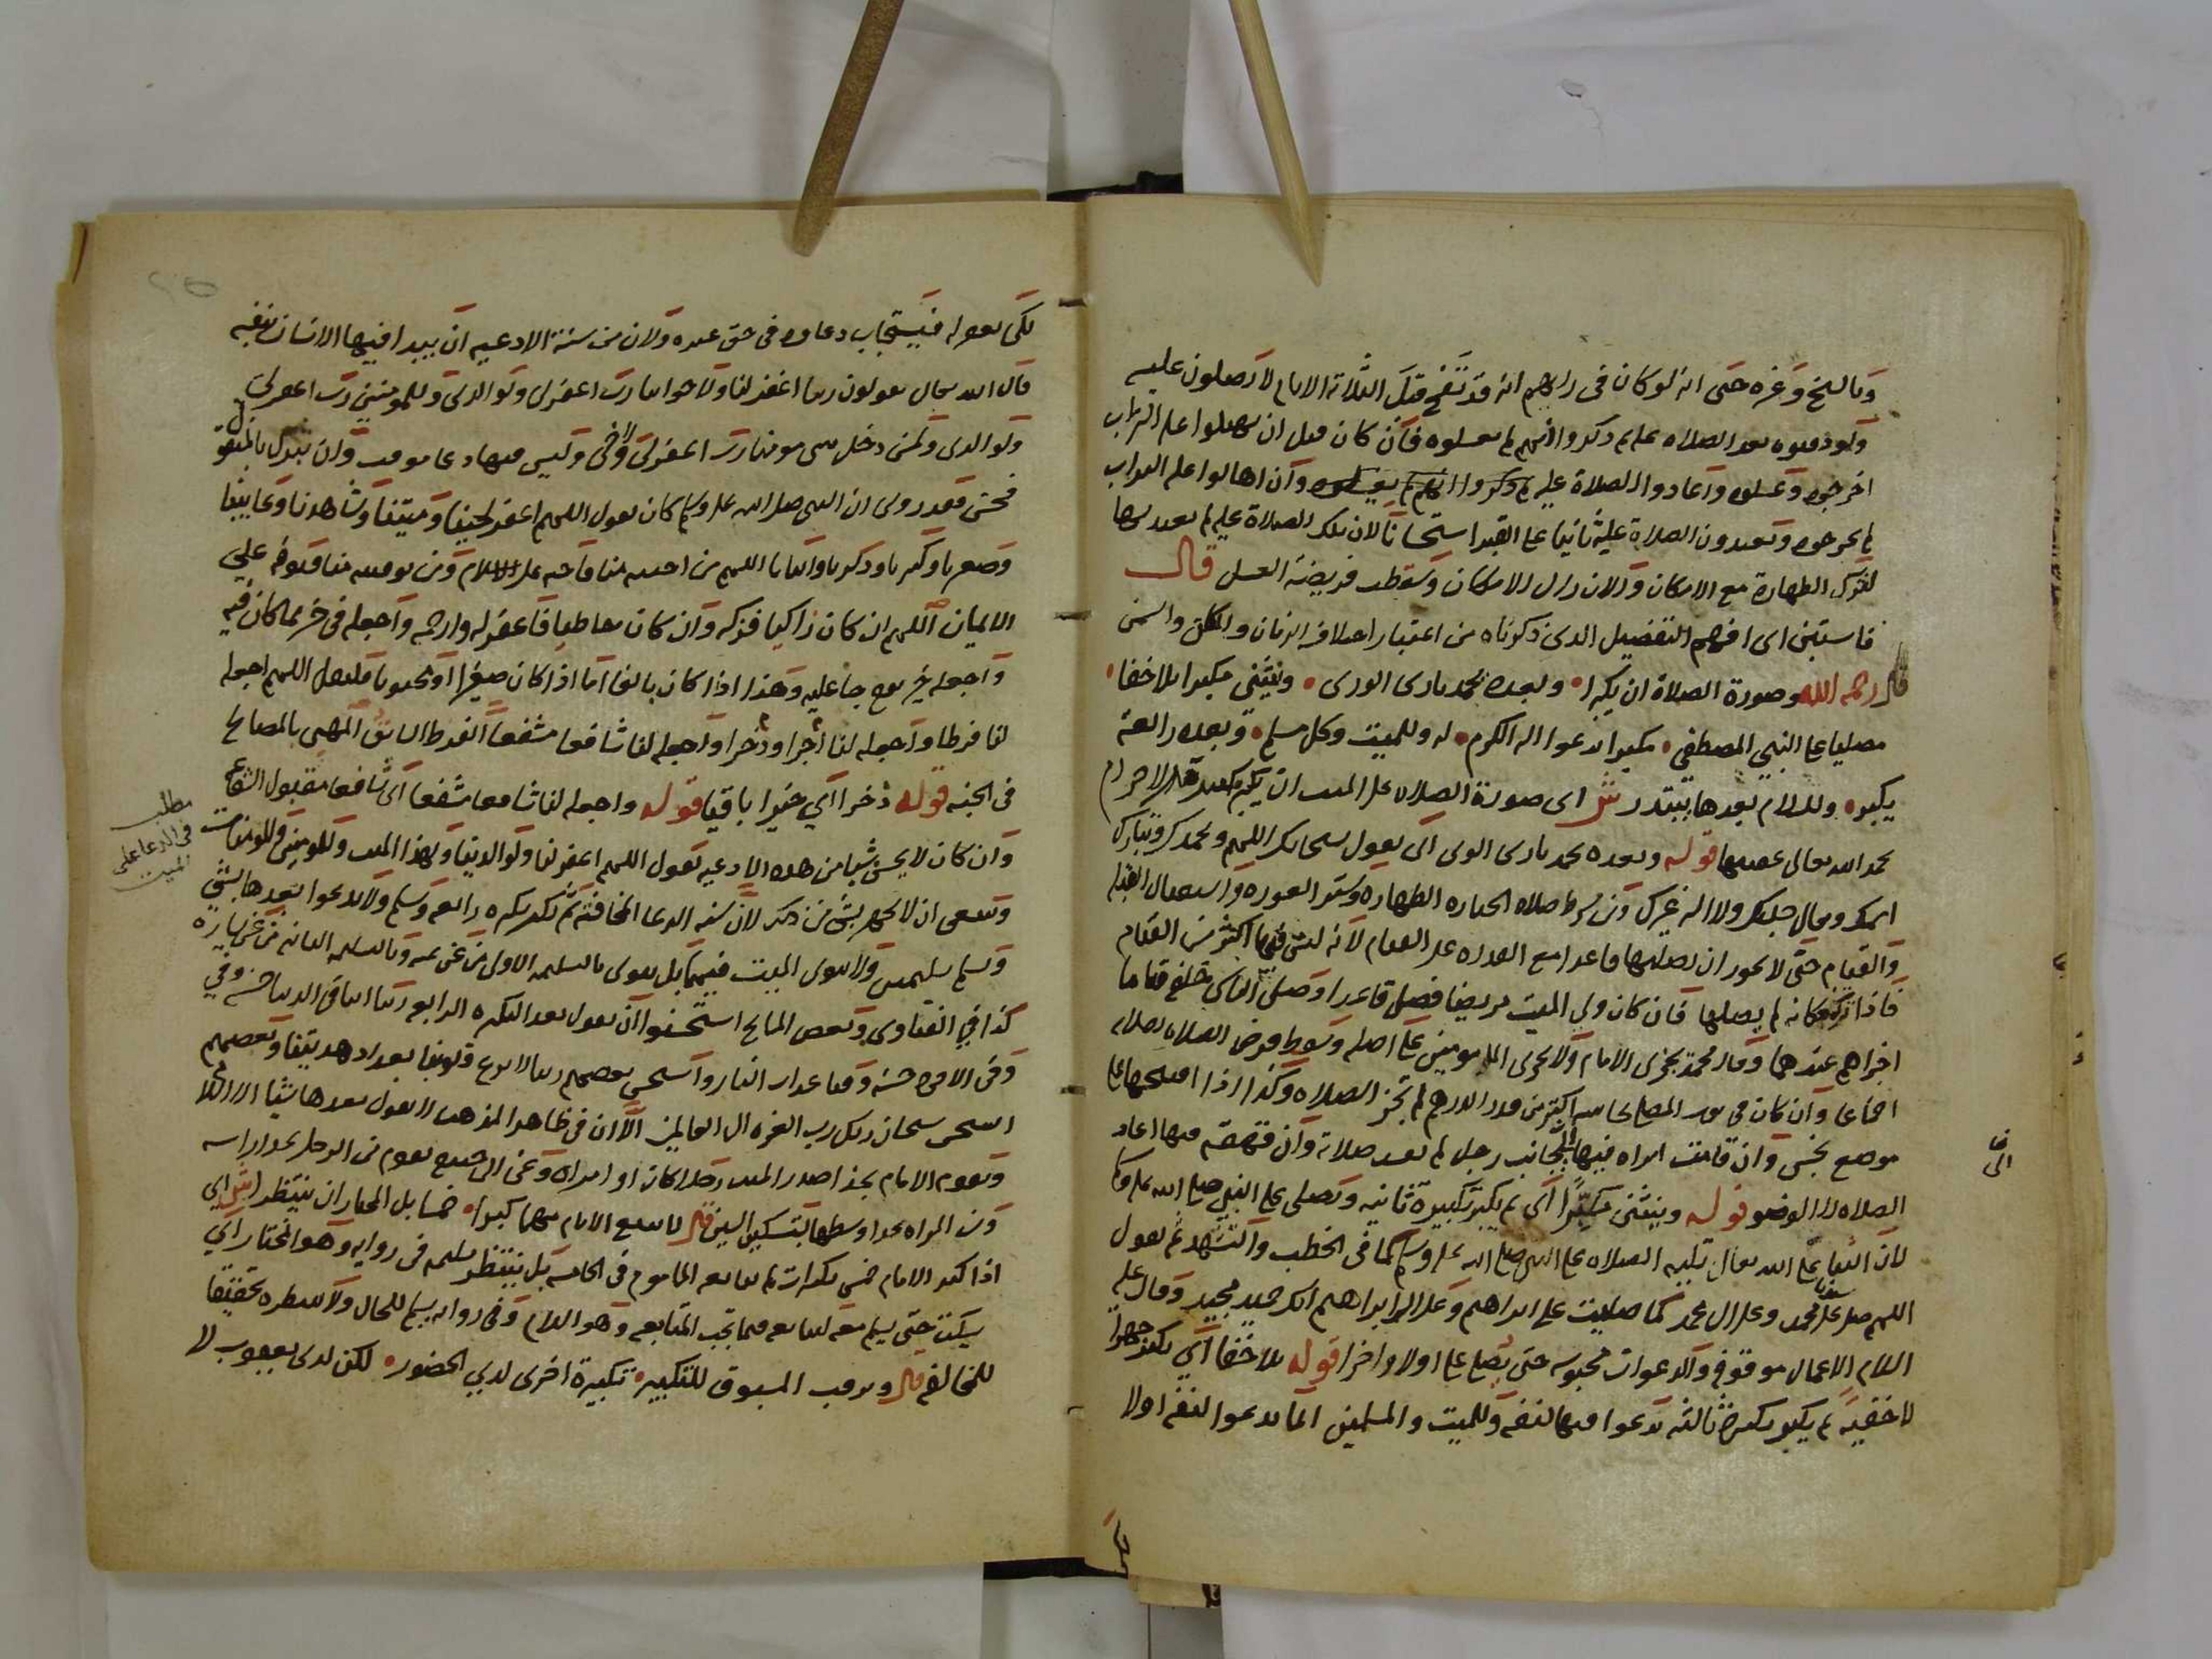 وبالسلخ وغيره حتى انه لو كان في رايهم انه قد تفسخ قبل الثلاثة الايام لا يصلون عليه
ولو دفنوه بعد الصلاه عليه ثم ذكروا انهم لم يغسلوه فان كان قبل ان يهيلوا عليه التراب
اخرجوه وغسلوه واعادوا الصلاة عليه وان اهالوا عليه التراب
لم يخرجوه ويعيدون الصلاة عليه ثانيا على القبر استحسانا لان تلك الصلاة عليه لم يعتد بها
لترك الطهارة مع الامكان والان زال الامكان وسقطت فريضة الغسل قال
فاستبن اى افهم التفصيل الذى ذكرناه من اعتبار اختلاف الزمان والمكان والسمن
قال رحمه الله وصورة الصلاة ان يكبرا • وبعده بحمد بارى الورى • وينثنى مكبرا بلا خفا •
مصليا على النبي المصطفى • مكبرا يدعوا اله الكرم • له وللميت وكل مسلم • وبعده رابعة
يكبر • وللسلام بعدها يبتدر ش اى صورة الصلاه على الميت ان يكبر تكبيرة الاحرام
بحمد الله تعالى عقيبها قوله وبعده بحمد بارى الورى اى يقول سبحانك اللهم وبحمدك وتبارك
اسمك وتعالى جدك ولا اله غيرك ومن شرط صلاه الجنازه الطهاره وستر العوره واستقبال القبله
والقيام حتى لا يجوز ان يصليها قاعدا مع القدره على القيام لانه ليس فيها اكثر من القيام
فاذا تركه فكانه لم يصلها فان كان ولي الميت مريضا فصلى قاعدا وصلى الناس خلفه قياما
اجزاهم عندهما وقال محمد يجزى الامام ولا يجزى المامومين على اصله وسقط فرض الصلاه بصلاته
اجماعا وان كان في ثوب المصلى نجاسه اكثر من قدر الدرهم لم تجز الصلاه وكذا اذا افتتحها على
موضع نجس وان قامت امراه فيها الى جانب رجل لم تفسد صلاته وان قهقه فيها اعاد
الصلاه لا الوضو قوله وينثنى مكبرا اى ثم يكبر تكبيرة ثانيه ويصلى على النبي صلى الله عليه وسلم
لان الثنا على الله تعالى تليه الصلاه على النبى صلى الله عليه وسلم كما فى الخطب والتشهد ثم يقول
اللهم صل على سيدنا محمد وعلى ال محمد كما صليت على ابراهيم وعلى ال ابراهيم انك حميد مجيد وقال عليه
السلام الاعمال موقوفه والدعوات محبوسه حتى يصلى على اولا واخرا قوله بلا خفا اى يكبر جهرا
لا خفية ثم يكبر تكبيرة ثالثه يدعوا فيها لنفسه وللميت والمسلمين انما يدعوا لنفسه اولا
لكى يغفر له فيستجاب دعاوه فى حق غيره ولان من سنة الادعيه ان يبدا فيها الانسان بنفسه
قال الله تعالى يقولون ربنا اغفر لنا ولاخواننا رب اغفرلى ولوالدى وللمومنين رب اغفرلى
ولوالدى ولمن دخل بيتى مومنا رب اغفرلى ولاخى وليس فيها دعا موقت وان تبرك بالمنقول
فحسن فقد روى ان النبى صلى الله عليه وسلم كان يقول اللهم اغفر لحينا وميتنا وشاهدنا وغايبنا
وصغيرنا وكبيرنا وذكرنا وانثانا اللهم من احييته منا فاحيه على الاسلام ومن توفيته منا فتوفه على
الايمان اللهم ان كان زاكيا فزكه وان كان خاطيا فاغفر له وارحمه واجعله فى خير مما كان فيه
واجعله خير يوم جا عليه وهذا اذا كان بالغا اما اذا كان صغيرا او مجنونا فليقل اللهم اجعله
لنا فرطا واجعله لنا اجرا وذخرا واجعله لنا شافعا مشفعا الفرط السابق المهيى بالمصالح
فى الجنه قوله ذخرا اى خيرا باقيا قوله واجعله لنا شافعا مشفعا اى شافعا مقبول الشفاعه
وان كان لا يحسن شيا من هذه الادعيه يقول اللهم اغفر لنا ولوالدينا ولهذا الميت وللمومنين وللمومنات
وينبغى ان لا يجهر بشى من ذلك لان سنه الدعا المخافته ثم يكبر تكبيره رابعه ويسلم ولا يدعوا بعدها بشى
ويسلم تسليمتين ولا ينوى الميت فيهما بل ينوى بالتسليمه الاولى من عن يمينه وبالتسليمه الثانيه من عن يساره
كذا في الفتاوى وبعض المشايخ استحسنوا ان يقول بعد التكبيره الرابعه ربنا اتنا فى الدنيا حسنه وفي
وفى الاخره حسنه وقنا عذاب النار واستحسن بعضهم ربنا لا تزغ قلوبنا بعد اذ هديتنا وبعضهم
استحسن سبحان ربك رب العزه الى العالمين الا ان فى ظاهر المذهب لا يقول بعدها شيا الا السلام
ويقوم الامام بحذا صدر الميت رجلا كان او امراه وعن ابى حنيفه يقوم من الرجل بحذا راسه
ومن المراه بحذا وسطها بتسكين السين قال لا يتبع الامام مهما كبرا • خمسا بل المختار ان ينتظرا ش اى
اذا كبر الامام خمس تكبيرات لم يتابعه الماموم فى الخامسه بل ينتظر تسليمه فى روايه وهو المختار اى
يسكت حتى يسلم معه ليتابعه فيما تجب المتابعه وهو السلام وفى روايه يسلم للحال ولا ينتظره تحقيقا
للمخالفه قال ويرقب المسبوق للتكبير • تكبيرة اخرى لدى الحضور • لكن لدى يعقوب لا
مطلب
فى الدعا على
الميت